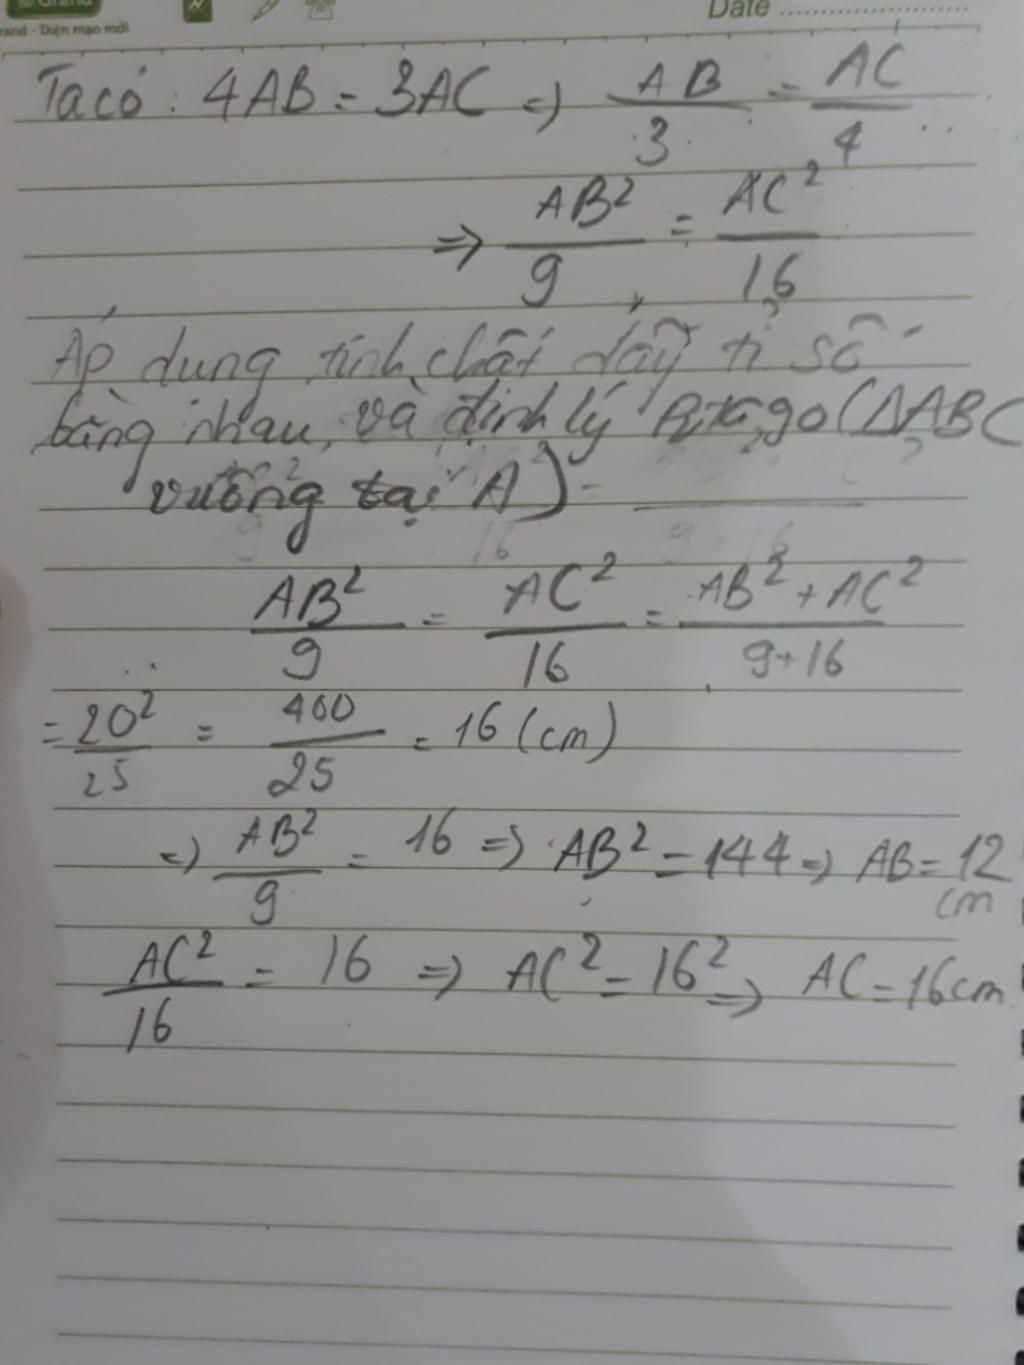 Grand
rand - Diện mạo mới
Date
Ta có : 4AB = 3AC => AB/3 = AC/4
=> AB²/9 = AC²/16
Áp dụng tính chất dãy tỉ số
bằng nhau, và định lý Pitago (ΔABC
vuông tại A)
AB²/9 = AC²/16 = AB² + AC²/9+16
= 20²/25 = 400/25 = 16 (cm)
=> AB²/9 = 16 => AB² = 144 => AB = 12
cm
AC²/16 = 16 => AC² = 16² => AC = 16cm